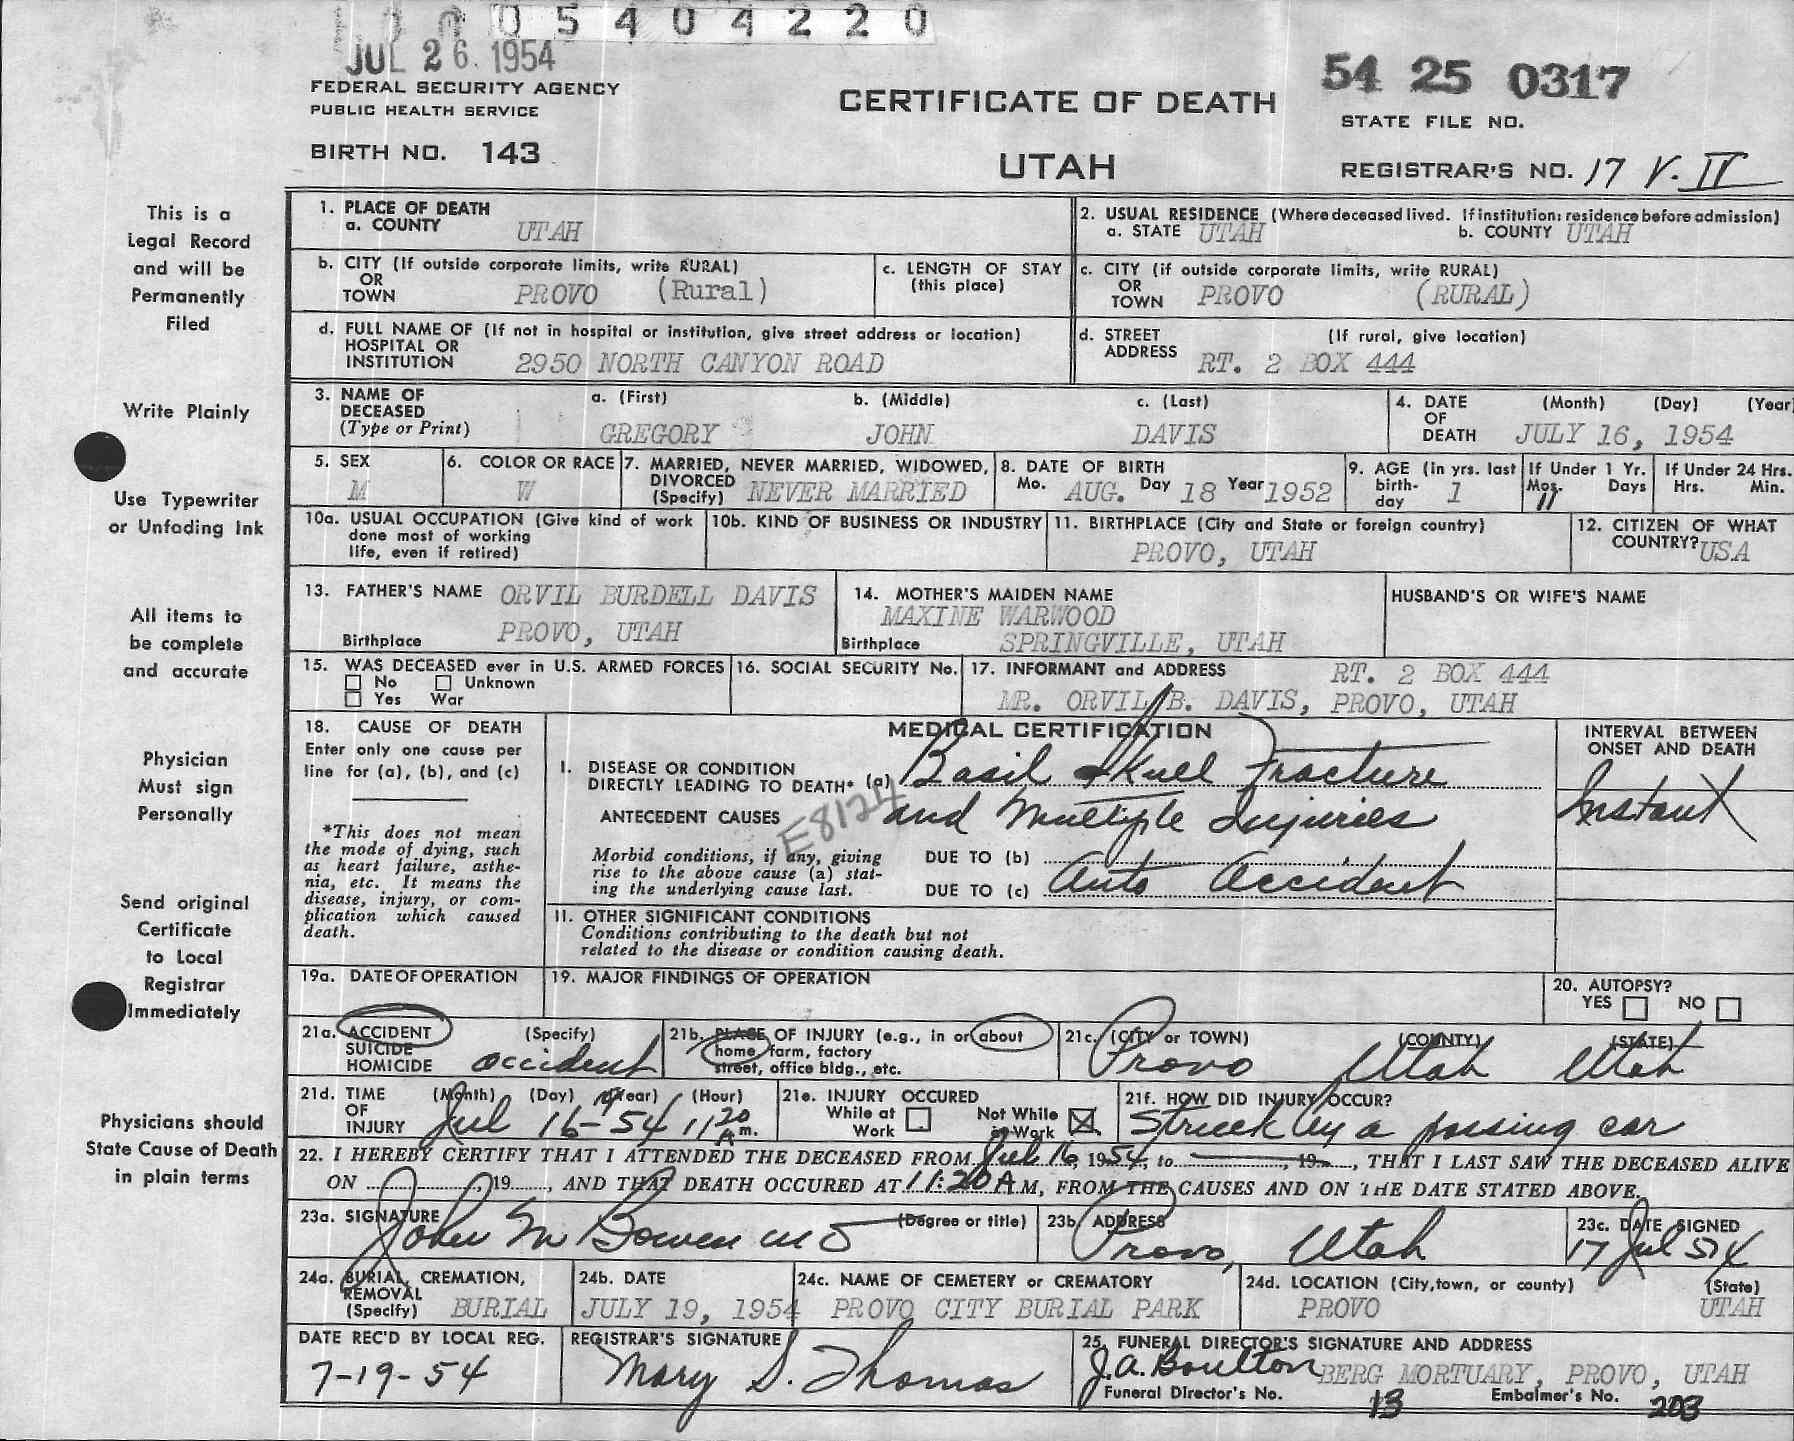 05404220
JUL 26 1954
FEDERAL SECURITY AGENCY
PUBLIC HEALTH SERVICE
BIRTH NO. 143
CERTIFICATE OF DEATH
UTAH
54 25 0317
STATE FILE NO.
REGISTRAR'S NO. 17 V. IV
This is a
Legal Record
and will be
Permanently
Filed
Write Plainly
Use Typewriter
or Unfading Ink
All items to
be complete
and accurate
Physician
Must sign
Personally
Send original
Certificate
to Local
Registrar
Immediately
Physicians should
State Cause of Death
in plain terms
1. PLACE OF DEATH
a. COUNTY UTAH
2. USUAL RESIDENCE (Where deceased lived. If institution: residence before admission)
a. STATE UTAH b. COUNTY UTAH
b. CITY (If outside corporate limits, write RURAL)
OR
TOWN PROVO (Rural)
c. LENGTH OF STAY
(this place)
c. CITY (if outside corporate limits, write RURAL)
OR
TOWN PROVO (RURAL)
d. FULL NAME OF (If not in hospital or institution, give street address or location)
HOSPITAL OR
INSTITUTION 2950 NORTH CANYON ROAD
d. STREET (If rural, give location)
ADDRESS RT. 2 BOX 444
3. NAME OF
DECEASED
(Type or Print)
a. (First) b. (Middle) c. (Last)
GREGORY JOHN DAVIS
4. DATE (Month) (Day) (Year)
OF
DEATH JULY 16, 1954
5. SEX
M
6. COLOR OR RACE
W
7. MARRIED, NEVER MARRIED, WIDOWED,
DIVORCED
(Specify) NEVER MARRIED
8. DATE OF BIRTH
Mo. AUG. Day 18 Year 1952
9. AGE (in yrs. last
birth-
day 1
If Under 1 Yr.
Mos. Days
11
If Under 24 Hrs.
Hrs. Min.
10a. USUAL OCCUPATION (Give kind of work
done most of working
life, even if retired)
10b. KIND OF BUSINESS OR INDUSTRY
11. BIRTHPLACE (City and State or foreign country)
PROVO, UTAH
12. CITIZEN OF WHAT
COUNTRY? USA
13. FATHER'S NAME ORVIL BURDELL DAVIS
Birthplace PROVO, UTAH
14. MOTHER'S MAIDEN NAME
MAXINE WARWOOD
Birthplace SPRINGVILLE, UTAH
HUSBAND'S OR WIFE'S NAME
15. WAS DECEASED ever in U.S. ARMED FORCES
No Unknown
Yes War
16. SOCIAL SECURITY No.
17. INFORMANT and ADDRESS RT. 2 BOX 444
MR. ORVIL B. DAVIS, PROVO, UTAH
18. CAUSE OF DEATH
Enter only one cause per
line for (a), (b), and (c)
*This does not mean
the mode of dying, such
as heart failure, asthe-
nia, etc. It means the
disease, injury, or com-
plication which caused
death.
MEDICAL CERTIFICATION
I. DISEASE OR CONDITION
DIRECTLY LEADING TO DEATH* (a) Basil Skull Fracture
ANTECEDENT CAUSES and Multiple Injuries
E8124
Morbid conditions, if any, giving
rise to the above cause (a) stat-
ing the underlying cause last.
DUE TO (b)
DUE TO (c) Auto Accident
INTERVAL BETWEEN
ONSET AND DEATH
Instant
II. OTHER SIGNIFICANT CONDITIONS
Conditions contributing to the death but not
related to the disease or condition causing death.
19a. DATE OF OPERATION
19. MAJOR FINDINGS OF OPERATION
20. AUTOPSY?
YES NO
21a. ACCIDENT (Specify)
SUICIDE
HOMICIDE accident
21b. PLACE OF INJURY (e.g., in or about
home, farm, factory
street, office bldg., etc.
21c. (CITY or TOWN) (COUNTY) (STATE)
Provo Utah Utah
21d. TIME (Month) (Day) (Year) (Hour)
OF
INJURY Jul 16-54 11 20 A m.
21e. INJURY OCCURED
While at Work
Not While at Work
21f. HOW DID INJURY OCCUR?
Struck by a passing car
22. I HEREBY CERTIFY THAT I ATTENDED THE DECEASED FROM Jul 16, 1954, to , 19 , THAT I LAST SAW THE DECEASED ALIVE
ON , 19 , AND THAT DEATH OCCURED AT 11:20 A M, FROM THE CAUSES AND ON THE DATE STATED ABOVE.
23a. SIGNATURE (Degree or title)
John M Bowen MD
23b. ADDRESS
Provo, Utah
23c. DATE SIGNED
17 Jul 54
24a. BURIAL, CREMATION,
REMOVAL
(Specify) BURIAL
24b. DATE
JULY 19, 1954
24c. NAME OF CEMETERY or CREMATORY
PROVO CITY BURIAL PARK
24d. LOCATION (City, town, or county) (State)
PROVO UTAH
DATE REC'D BY LOCAL REG.
7-19-54
REGISTRAR'S SIGNATURE
Mary S. Thomas
25. FUNERAL DIRECTOR'S SIGNATURE AND ADDRESS
J.A. Boulton BERG MORTUARY, PROVO, UTAH
Funeral Director's No. 13 Embalmer's No. 203